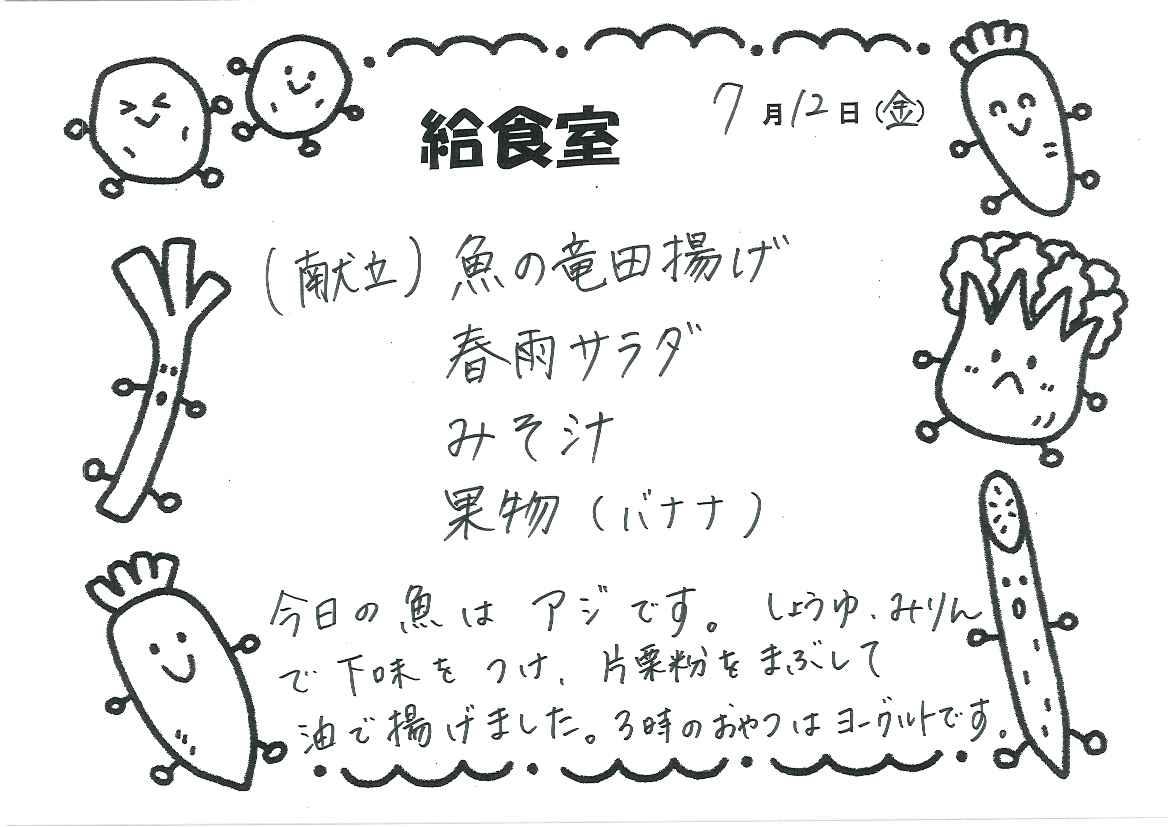 給食室
7月12日(金)
(献立)魚の竜田揚げ
春雨サラダ
みそ汁
果物(バナナ)
今日の魚は アジです。 しょうゆ、みりん
で下味を つけ、片栗粉をまぶして
油で揚げました。3時のおやつはヨーグルトです。